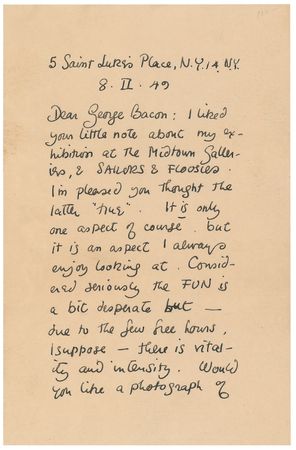 5 Saint Luke's Place, N.Y. 14 N.Y.
8. II. 49
Dear George Bacon: I liked
your little note about my ex-
hibition at the Midtown Galler-
ies, & SAILORS & FLOOSIES.
I'm pleased you thought the
latter "true". It is only
one aspect of course. but
it is an aspect I always
enjoy looking at. Consid-
ered seriously the FUN is
a bit desperate but —
due to the few free hours,
I suppose — there is vital-
ity and intensity. Would
you like a photograph of